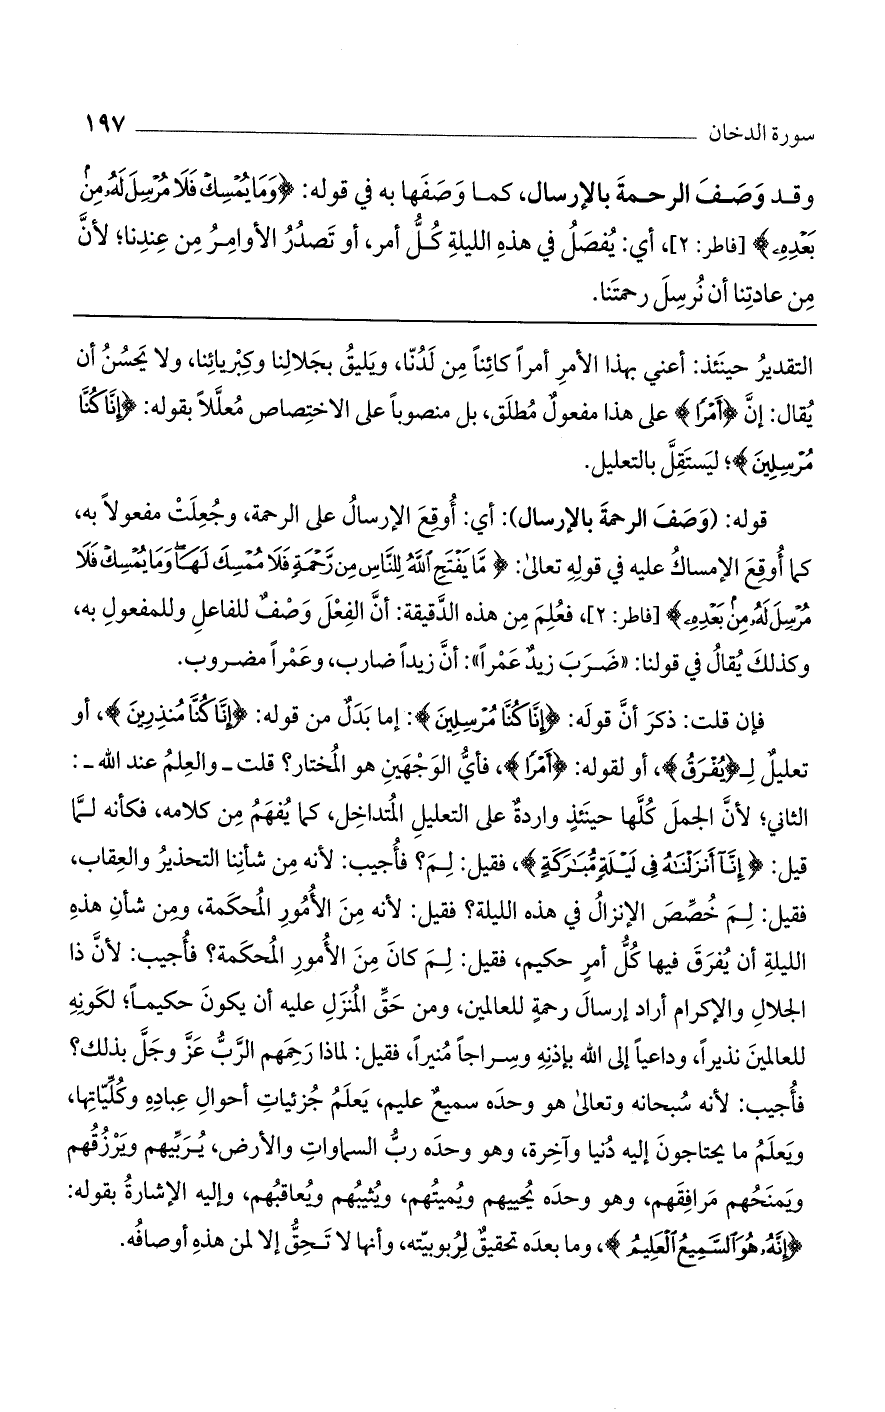 سورة الدخان ١٩٧
وقد وَصَفَ الرحمةَ بالإرسال، كما وَصَفَها به في قوله: ﴿وَمَا يُمْسِكْ فَلَا مُرْسِلَ لَهُۥ مِنۢ
بَعْدِهِۦ﴾ [فاطر: ٢]، أي: يُفصَلُ في هذهِ الليلةِ كُلُّ أمر، أو تَصدُرُ الأوامِرُ مِن عِندِنا؛ لأنَّ
مِن عادتِنا أن نُرسِلَ رحمتَنا.
التقديرُ حينَئذ: أعني بهذا الأمرِ أمراً كائِناً مِن لَدُنّا، ويَليقُ بجَلالِنا وكِبْريائِنا، ولا يَحسُنُ أن
يُقال: إنَّ ﴿أَمْرًا﴾ على هذا مفعولٌ مُطلَق، بل منصوباً على الاختِصاص مُعلَّلاً بقوله: ﴿إِنَّا كُنَّا
مُرْسِلِينَ﴾؛ ليَستَقِلَّ بالتعليل.
قوله: (وَصَفَ الرحمةَ بالإرسال): أي: أُوقِعَ الإرسالُ على الرحمة، وجُعِلَتْ مفعولاً به،
كما أُوقِعَ الإمساكُ عليه في قولِهِ تعالىٰ: ﴿مَّا يَفْتَحِ ٱللَّهُ لِلنَّاسِ مِن رَّحْمَةٍ فَلَا مُمْسِكَ لَهَا ۖ وَمَا يُمْسِكْ فَلَا
مُرْسِلَ لَهُۥ مِنۢ بَعْدِهِۦ﴾ [فاطر: ٢]، فعُلِمَ مِن هذه الدَّقيقة: أنَّ الفِعْلَ وَصْفٌ للفاعلِ وللمفعولِ به،
وكذلكَ يُقالُ في قولنا: «ضَرَبَ زيدٌ عَمْراً»: أنَّ زيداً ضارب، وعَمْراً مضروب.
فإن قلت: ذكرَ أنَّ قولَه: ﴿إِنَّا كُنَّا مُرْسِلِينَ﴾: إما بَدَلٌ من قوله: ﴿إِنَّا كُنَّا مُنذِرِينَ﴾، أو
تعليلٌ لـ﴿يُفْرَقُ﴾، أو لقوله: ﴿أَمْرًا﴾، فأيُّ الوَجْهَينِ هو المُختار؟ قلت ـ والعِلمُ عند الله ـ :
الثاني؛ لأنَّ الجملَ كُلَّها حينَئذٍ واردةٌ على التعليلِ المُتداخِل، كما يُفهَمُ مِن كلامه، فكأنه لـمَّا
قيل: ﴿إِنَّآ أَنزَلْنَٰهُ فِى لَيْلَةٍ مُّبَٰرَكَةٍ﴾، فقيل: لِـمَ؟ فأُجيب: لأنه مِن شأنِنا التحذيرُ والعِقاب،
فقيل: لِـمَ خُصِّصَ الإنزالُ في هذه الليلة؟ فقيل: لأنه مِنَ الأُمُورِ المُحكَمة، ومِن شأنِ هذهِ
الليلةِ أن يُفرَقَ فيها كُلُّ أمرٍ حكيم، فقيل: لِـمَ كانَ مِنَ الأمورِ المُحكَمة؟ فأُجيب: لأنَّ ذا
الجلالِ والإكرام أراد إرسالَ رحمةٍ للعالمين، ومن حَقِّ المُنزَلِ عليه أن يكونَ حكيماً؛ لكَونِهِ
للعالمينَ نذيراً، وداعياً إلى الله بإذنِهِ وسِراجاً مُنيراً، فقيل: لماذا رَحِمَهم الرَّبُّ عَزَّ وجَلَّ بذلك؟
فأُجيب: لأنه سُبحانه وتعالىٰ هو وحدَه سميعٌ عليم، يَعلَمُ جُزئياتِ أحوالِ عِبادِهِ وكُلِّيّاتِها،
ويَعلَمُ ما يحتاجونَ إليه دُنيا وآخِرة، وهو وحدَه ربُّ السماواتِ والأرض، يُرَبِّيهم ويَرْزُقُهم
ويَمنَحُهم مَرافِقَهم، وهو وحدَه يُحييهم ويُميتُهم، ويُثيبُهم ويُعاقبُهم، وإليه الإشارةُ بقوله:
﴿إِنَّهُۥ هُوَ ٱلسَّمِيعُ ٱلْعَلِيمُ﴾، وما بعدَه تحقيقٌ لِرُبوبيّته، وأنها لا تَحِقُّ إلا لمن هذهِ أوصافُه.